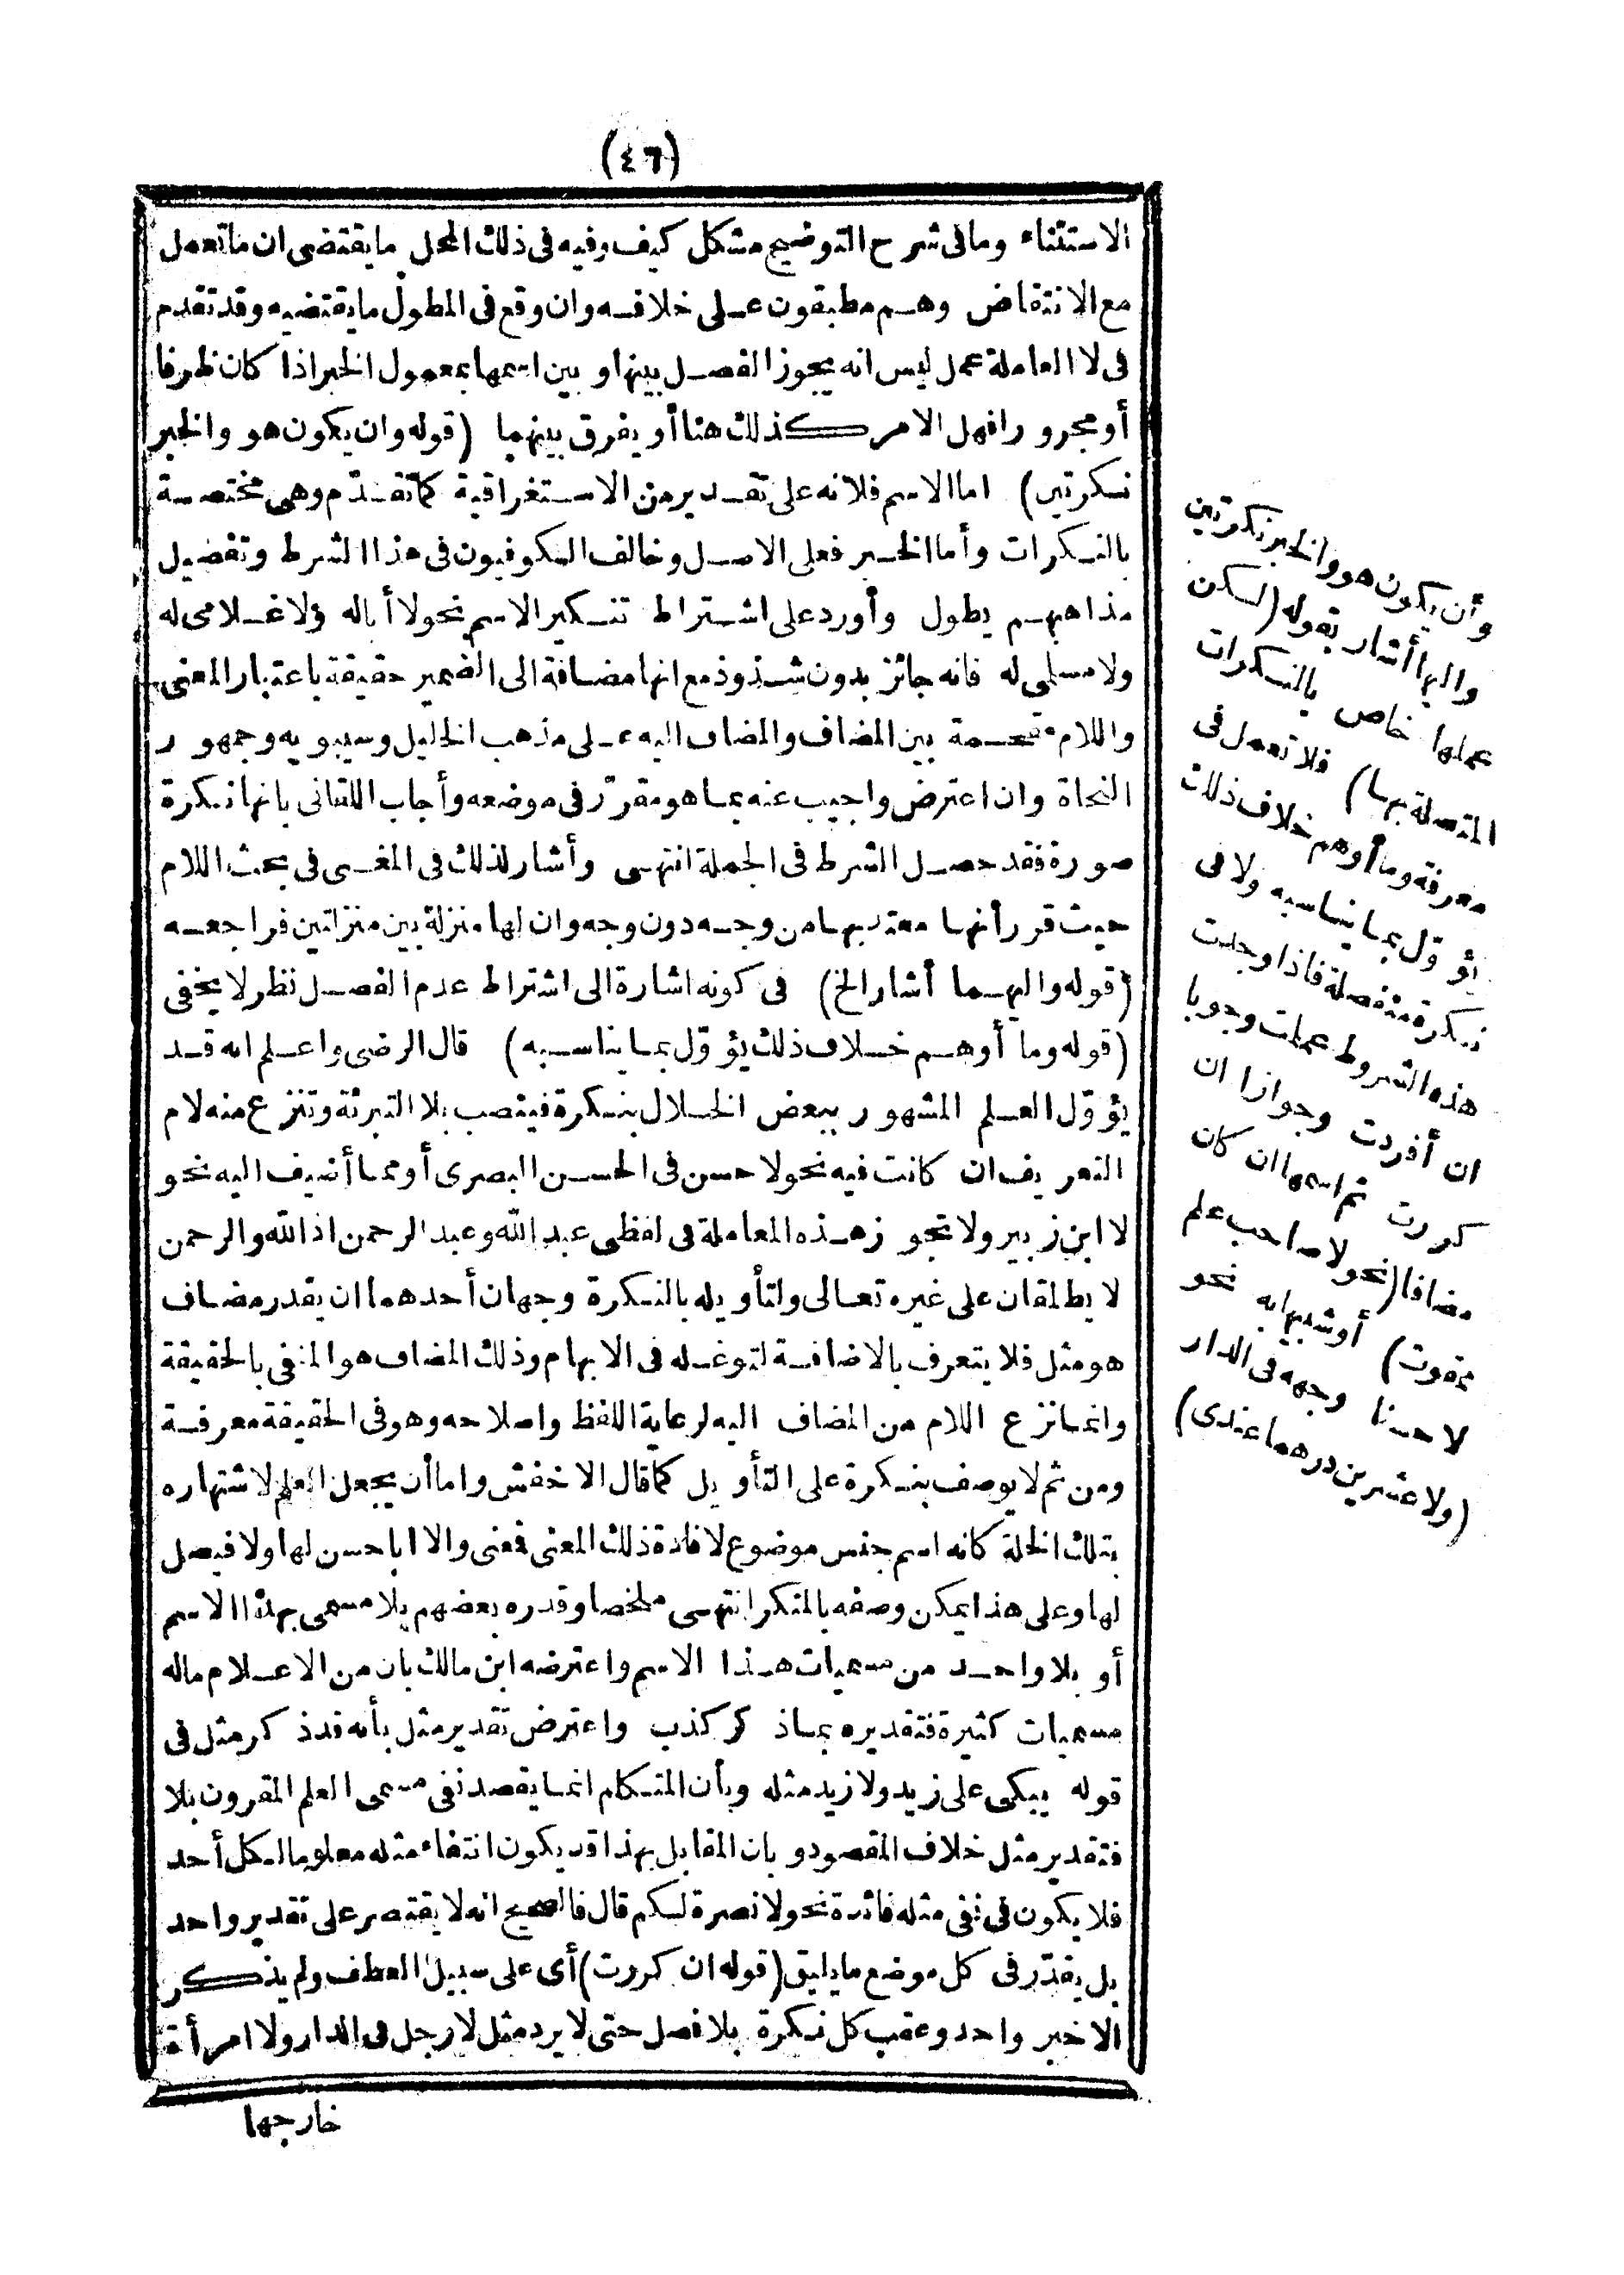 (٤٦)
الاستثناء وما فى شرح التوضيح مشكل كيف وفيه فى ذلك المحل ما يقتضى ان ما تعمل
مع الانتقاض وهم مطبقون على خلافه وان وقع فى المطول ما يقتضيه وقد تقدم
فى لا العاملة عمل ليس انه يجوز الفصل بينها وبين اسمها بمعمول الخبر اذا كان ظرفا
أو مجرورا فهل الامر كذلك هنا أو يفرق بينهما (قوله وان يكون هو والخبر
نكرتين) اما الاسم فلانه على تقدير من الاستغراقية كما تقدّم وهى مختصة
بالنكرات وأما الخبر فعلى الاصل وخالف الكوفيون فى هذا الشرط وتفصيل
مذاهبهم يطول وأورد على اشتراط تنكير الاسم نحو لا أبا له ولا غلامى له
ولا مسلمى له فانه جائز بدون شذوذ مع انها مضافة الى الضمير حقيقة باعتبار المعنى
واللام مقحمة بين المضاف والمضاف اليه على مذهب الخليل وسيبويه وجمهور
النحاة وان اعترض واجيب عنه بما هو مقرّر فى موضعه وأجاب اللقانى بانها نكرة
صورة فقد حصل الشرط فى الجملة انتهى وأشار لذلك فى المغنى فى بحث اللام
حيث قرر أنها معتد بها من وجه دون وجه وان لها منزلة بين منزلتين فراجعه
(قوله واليهما أشار الخ) فى كونه اشارة الى اشتراط عدم الفصل نظر لا يخفى
(قوله وما أوهم خلاف ذلك يؤوّل بما يناسبه) قال الرضى واعلم انه قد
يؤوّل العلم المشهور ببعض الخلال بنكرة فينصب بلا التبرئة وتنزع منه لام
التعريف ان كانت فيه نحو لا حسن فى الحسن البصرى أو مما أضيف اليه نحو
لا ابن زبير ولا تجوز هذه المعاملة فى لفظى عبد الله وعبد الرحمن اذ الله والرحمن
لا يطلقان على غيره تعالى ولتأويله بالنكرة وجهان أحدهما ان يقدر مضاف
هو مثل فلا يتعرف بالاضافة لتوغله فى الابهام وذلك المضاف هو المنفى بالحقيقة
وانما نزع اللام من المضاف اليه لرعاية اللفظ واصلاحه وهو فى الحقيقة معرفة
ومن ثم لا يوصف بنكرة على التأويل كما قال الاخفش واما أن يجعل العلم لاشتهاره
بتلك الخلة كانه اسم جنس موضوع لافادة ذلك المعنى فمعنى ولا ابا حسن لها ولا فيصل
لها وعلى هذا يمكن وصفه بالمنكر انتهى ملخصا وقدره بعضهم بلا مسمى بهذا الاسم
أو بلا واحد من مسميات هذا الاسم واعترضه ابن مالك بان من الاعلام ماله
مسميات كثيرة فتقديره بما ذكر كذب واعترض تقدير مثل بأنه قد ذكر مثل فى
قوله يبكى على زيد ولا زيد مثله وبأن المتكلم انما يقصد نفى مسمى العلم المقرون بلا
فتقدير مثل خلاف المقصود وبان المقابل بهذا قد يكون انتفاء مثله معلوما لكل أحد
فلا يكون فى نفى مثله فائدة نحو لا نصرة لكم قال فالصحيح انه لا يقتصر على تقدير واحد
بل يقدّر فى كل موضع ما يليق (قوله ان كررت) أى على سبيل العطف ولم يذكر
الاخبر واحد وعقب كل نكرة بلا فصل حتى لا يرد مثل لا رجل فى الدار ولا امرأة
خارجها
وأن يكون هو والخبر نكرتين
واليها أشار بقوله (لكن
عملها خاص بالنكرات
المتصلة بها) فلا تعمل فى
معرفة وما أوهم خلاف ذلك
يؤوّل بما يناسبه ولا فى
نكرة منفصلة فاذا وجدت
هذه الشروط عملت وجوبا
ان أفردت وجوازا ان
كررت ثم اسمها ان كان
مضافا (نحو لا صاحب علم
ممقوت) أو شبيها به نحو
لا حسنا وجهه فى الدار
(ولا عشرين درهما عندى)